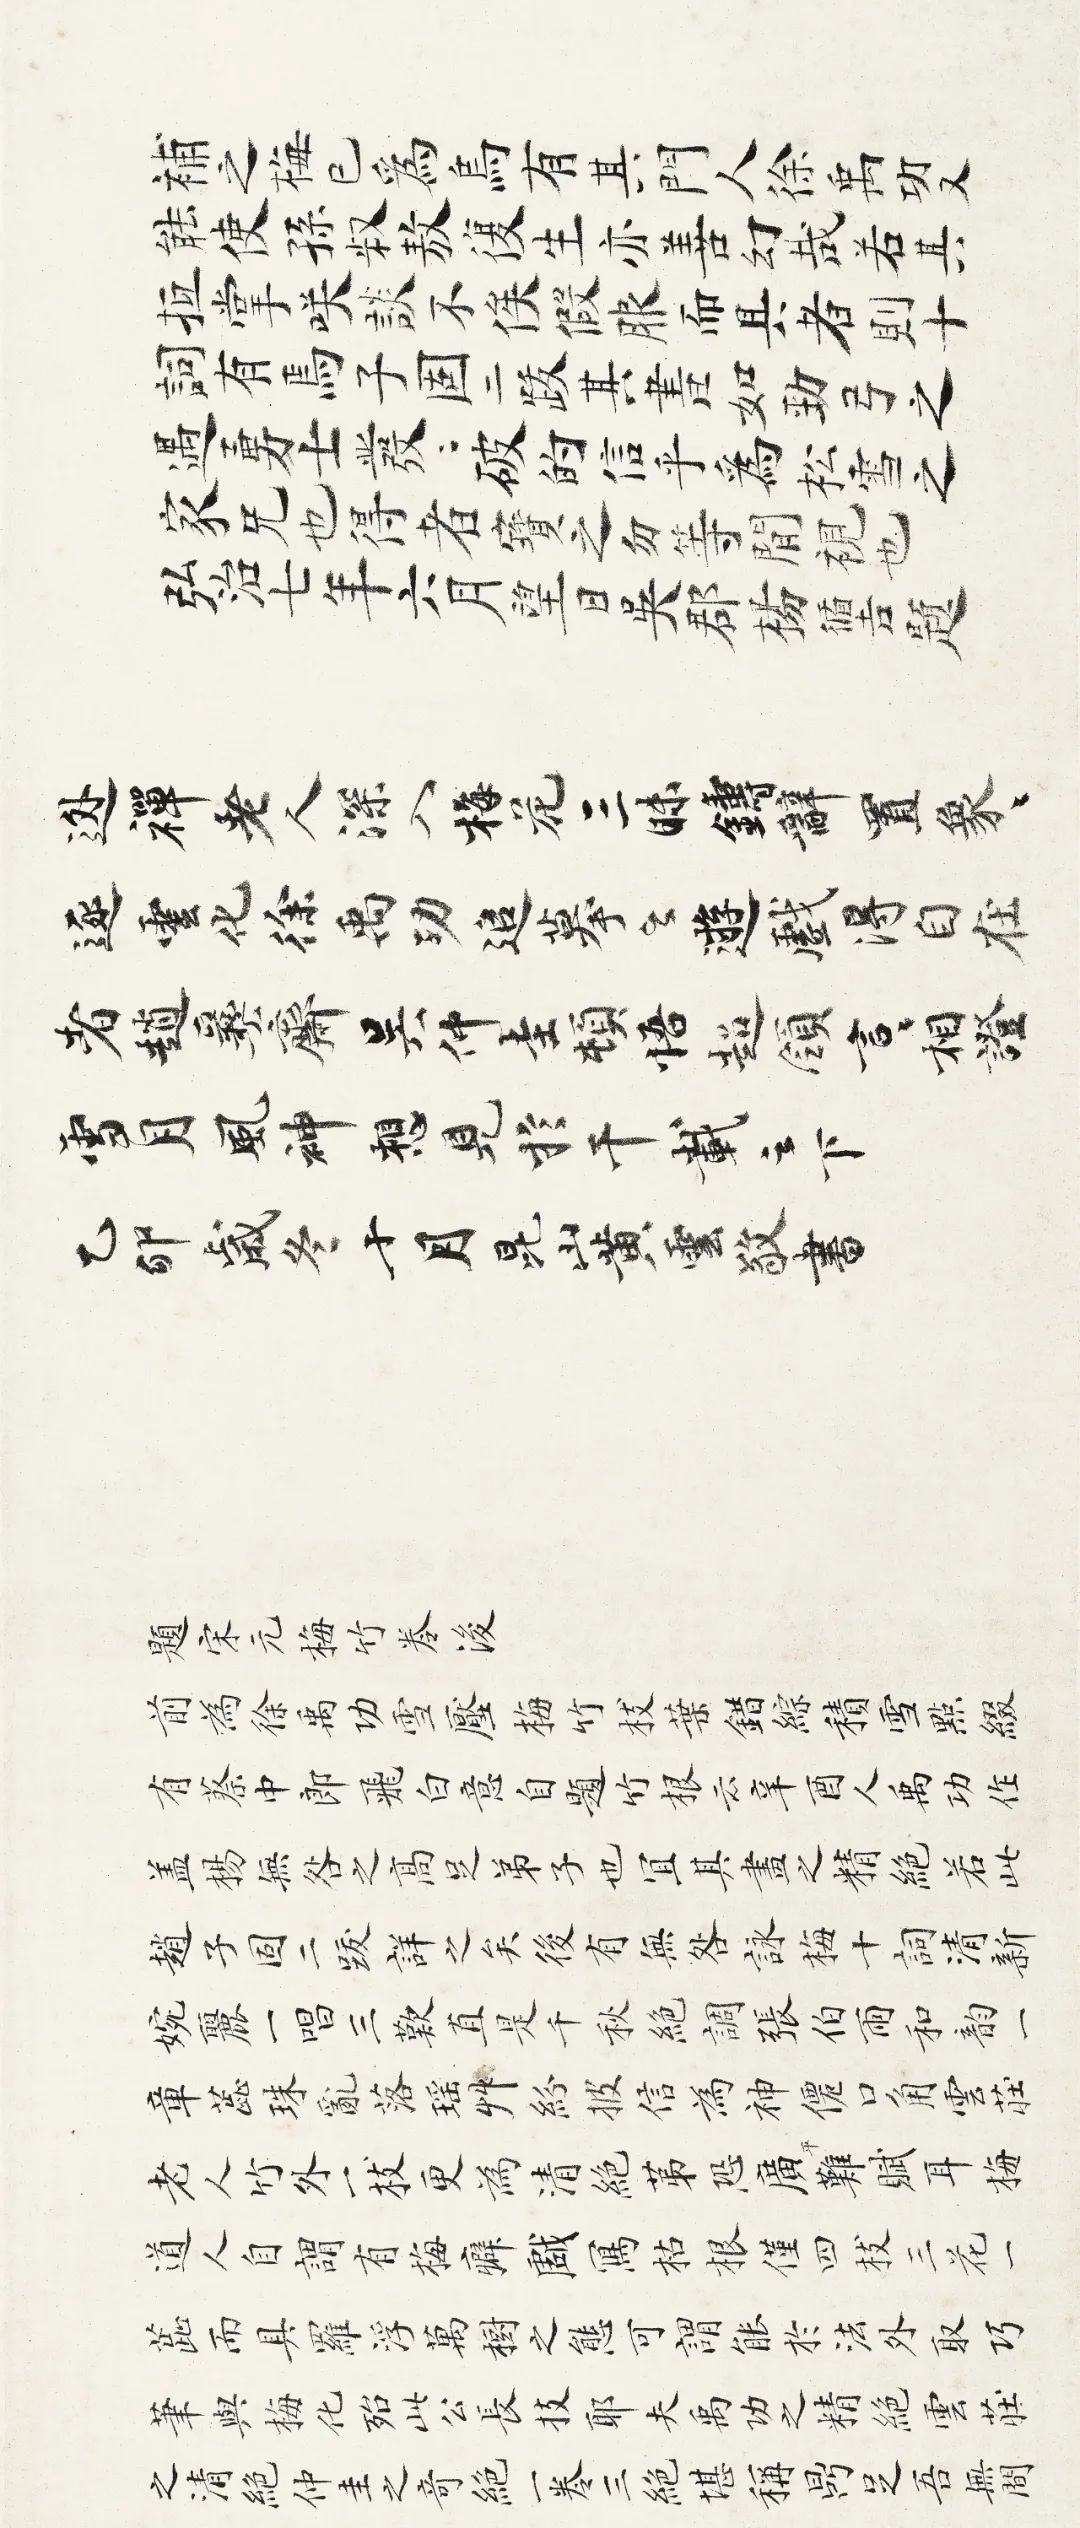 補之梅已為烏有其門人徐禹功又
能使孫叔敖復生亦善幻哉若其
抵掌咲談不俟假服而具者則十
詞有焉子固二跋其書如勁弓之
遇勇士發〻破的信乎為松雪之
家兄也得者寶之勿等閒視也
弘治七年六月望日吳郡楊循吉題
逃禪老人深入梅花三昧鑄辭置象〻
逐雲化徐禹功追摹之遊戲得自在
者趙彝齋吳仲圭頓悟超領言〻相證
雪月風神想見於千載之下
乙卯歲冬十月昆山黃雲敬書
題宋元梅竹卷後
前為徐禹功雪壓梅竹枝葉錯綜積雪點綴
有蔡中郎飛白意自題竹根云辛酉人禹功作
盖楊無咎之高足弟子也宜其畫之精絕若此
趙子固二跋詳之矣後有無咎詠梅十詞清新
婉麗一唱三歎直是千秋絕調張伯雨和韵一
章蕊珠亂落瑶艸紛披信為神僊口角雲莊
老人竹外一枝更為清絕第恐廣平難賦耳梅
道人自謂有梅癖戲寫枯根僅四枝三花一
蕊而具羅浮萬樹之態可謂能於法外取巧
筆與梅化殆此公長技耶夫禹功之精絕雲莊
之清絕仲圭之奇絕一卷三絕堪稱鼎足吾無間